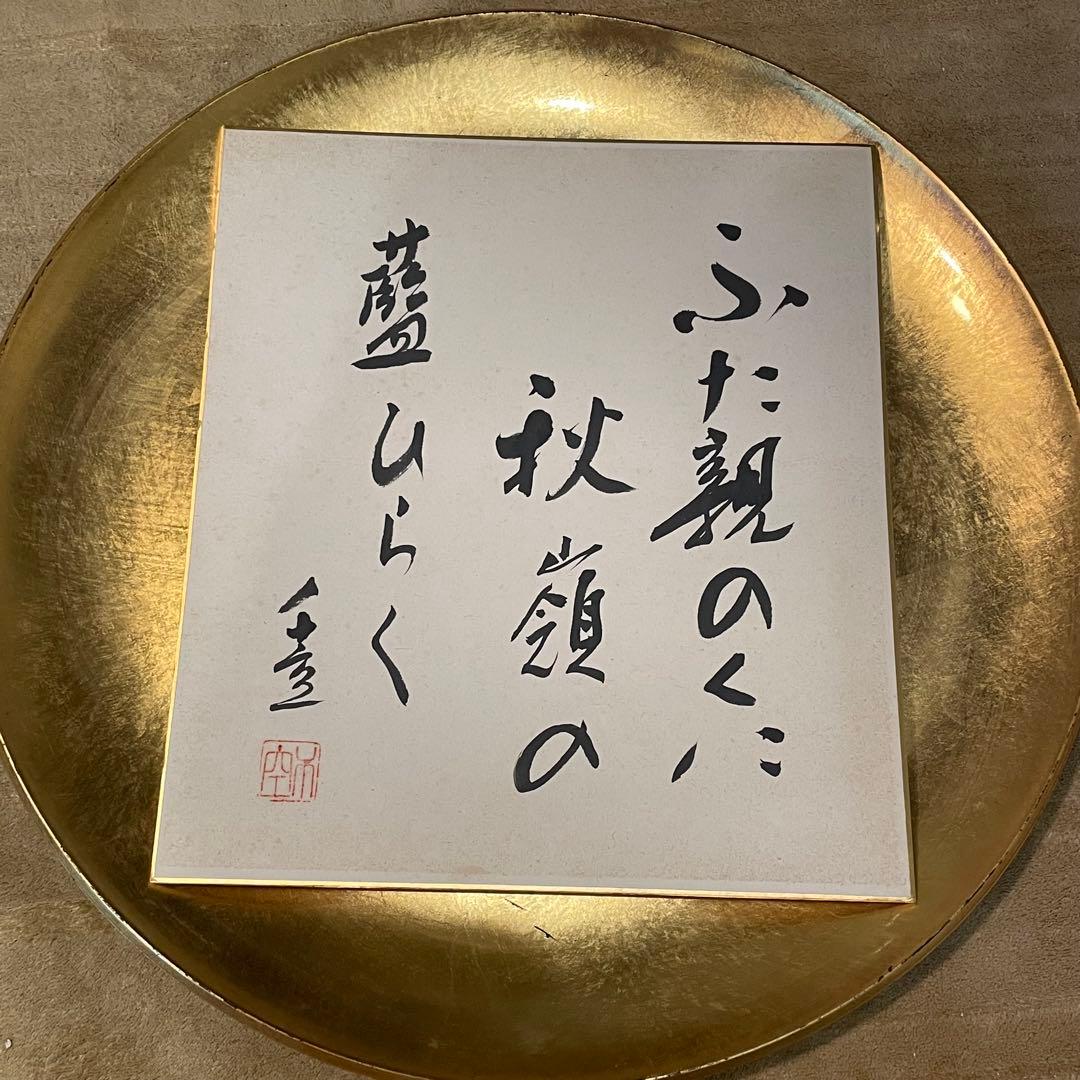 ふた親のくに
秋嶺の
藍ひらく